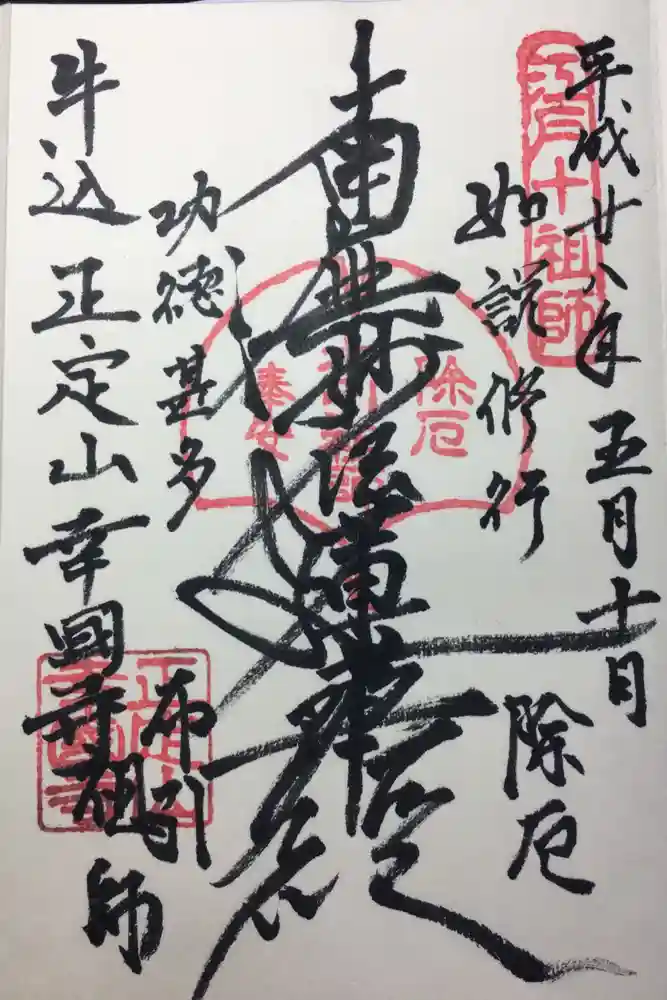 平成廿八年五月十日
江戸十祖師
如説修行
除厄
除厄
奉安
南無妙法蓮華経
功徳甚多
布引
祖師
牛込正定山幸國寺
正定山